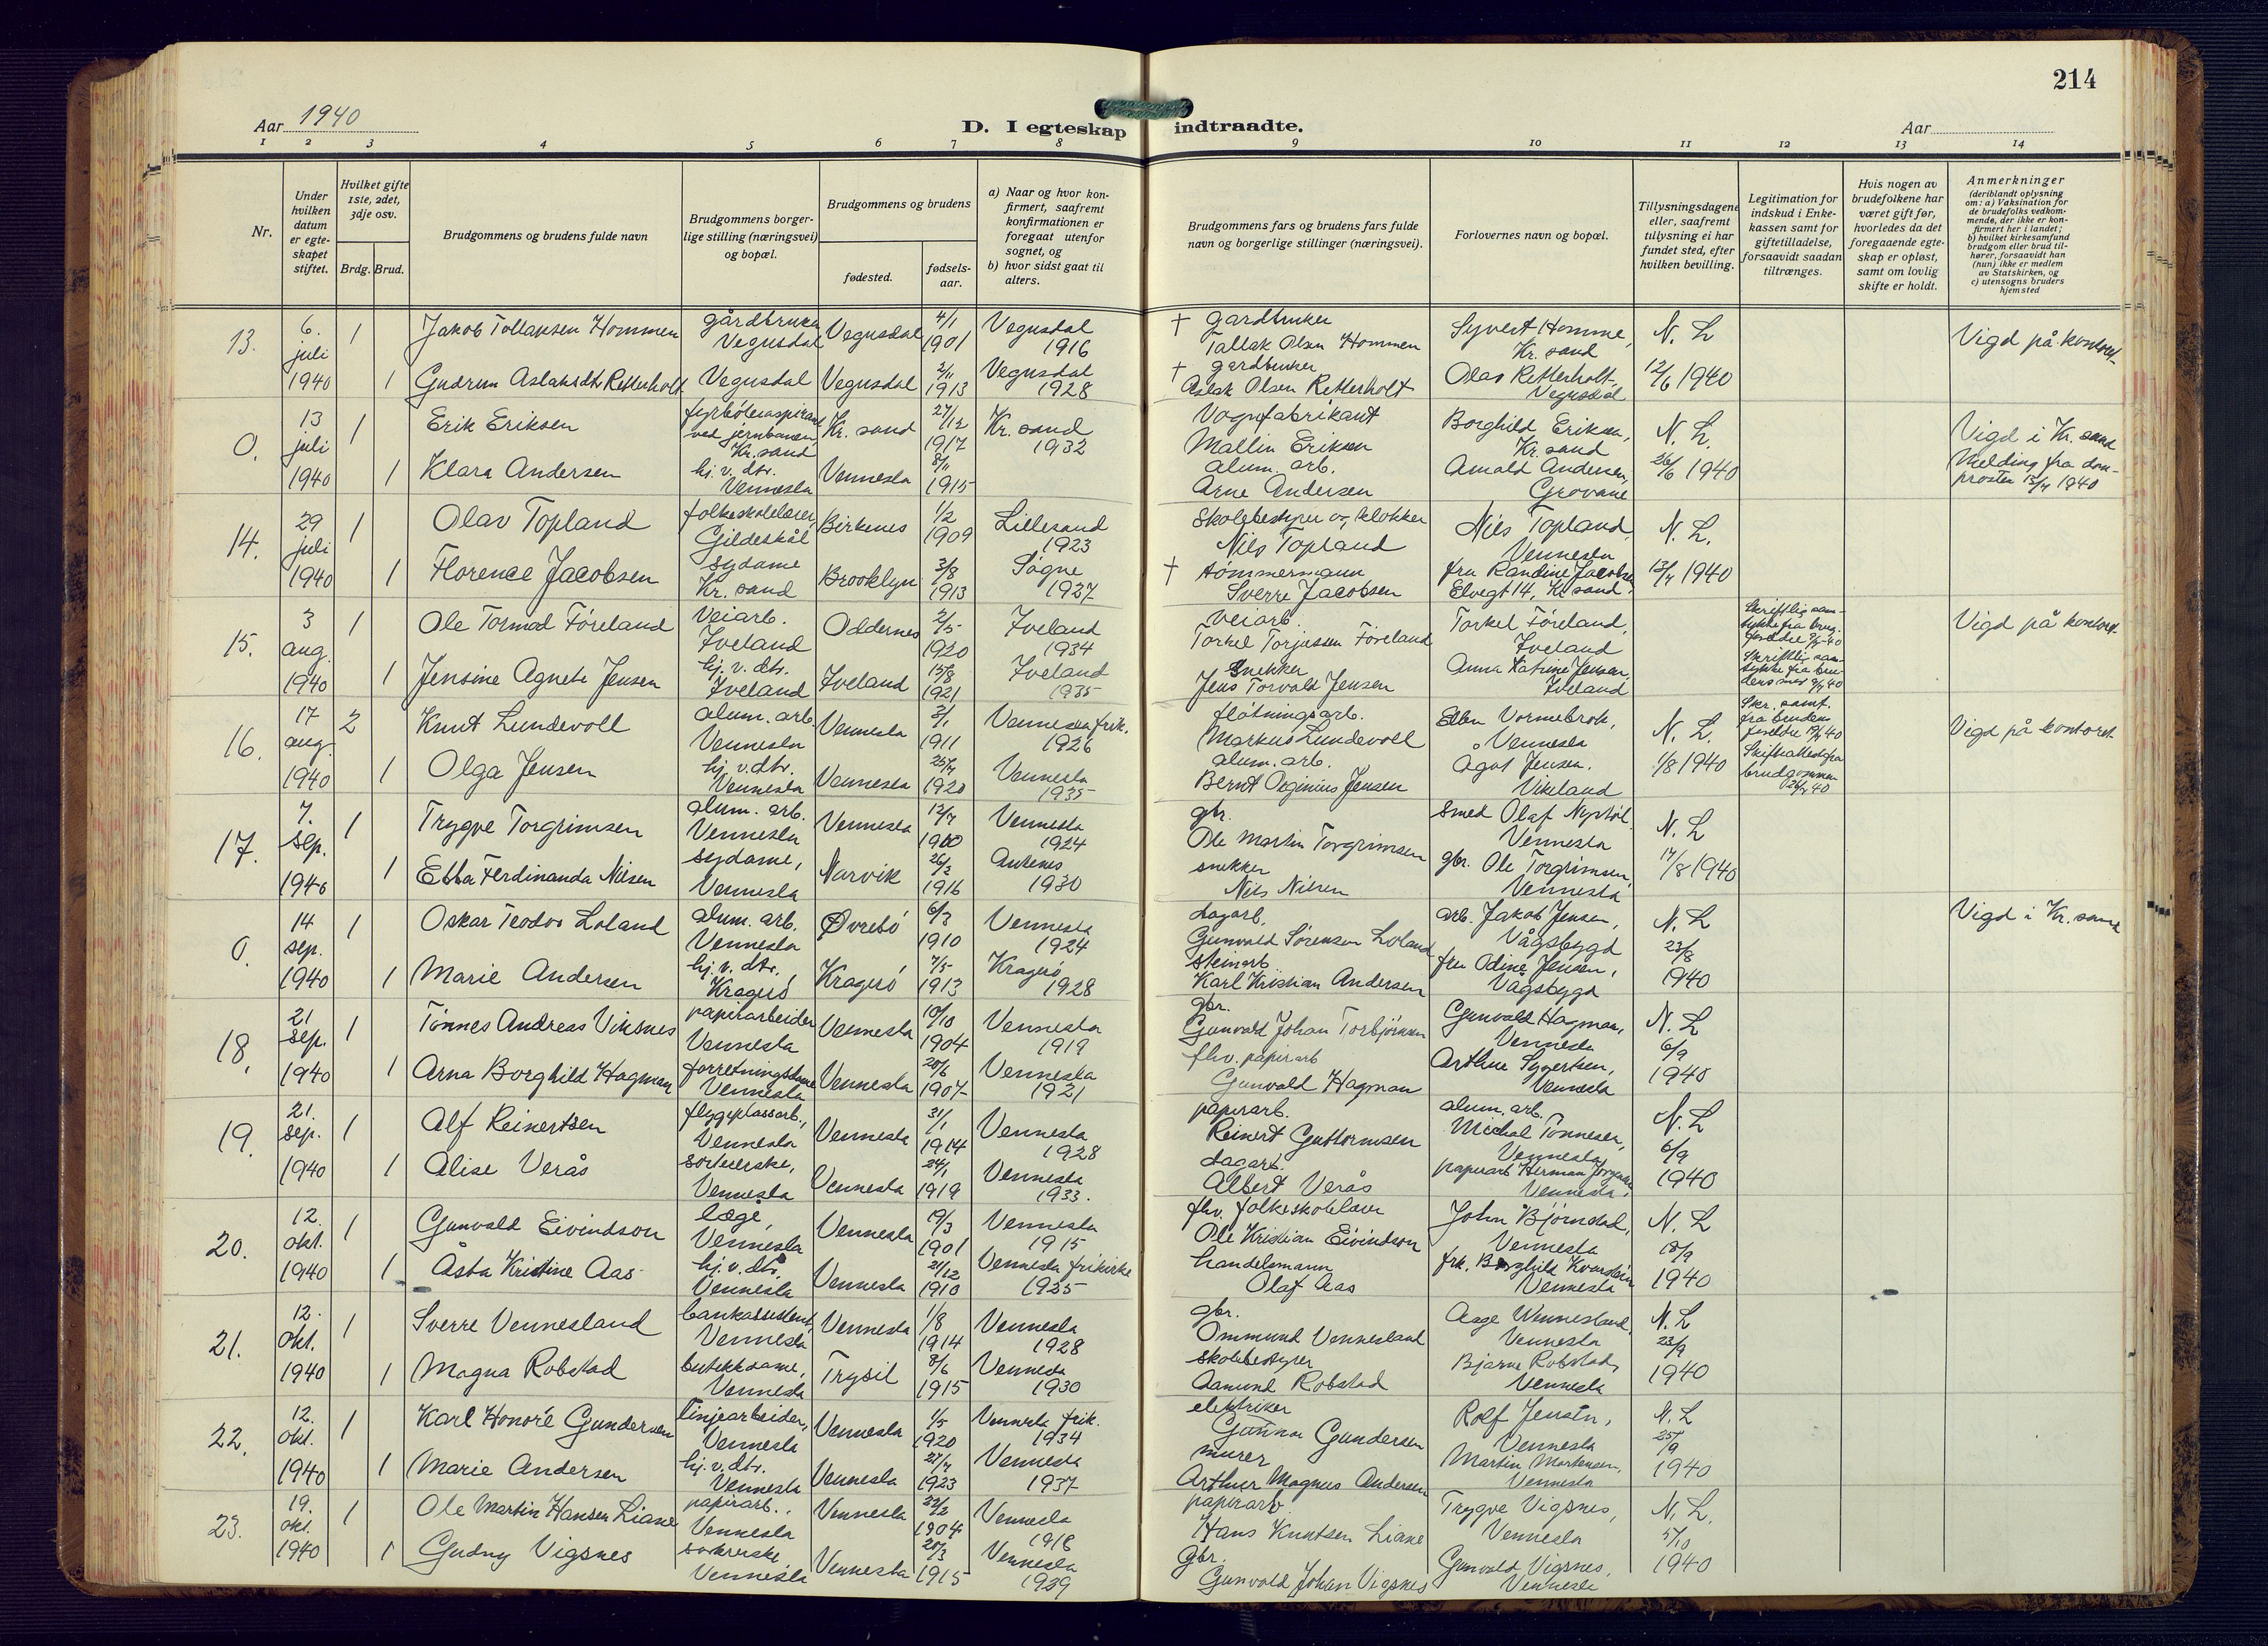 214
Aar 1940
D. I egteskap indtraadte.
Aar
1 2 3 4 5 6 7 8 9 10 11 12 13 14
Nr.
Under hvilken datum er egteskapet stiftet.
Hvilket gifte 1ste, 2det, 3dje osv.
Brdg. Brud.
Brudgommens og brudens fulde navn
Brudgommens borgerlige stilling (næringsvei) og bopæl.
Brudgommens og brudens
fødested.
fødselsaar.
a) Naar og hvor konfirmert, saafremt konfirmationen er foregaat utenfor sognet, og
b) hvor sidst gaat til alters.
Brudgommens fars og brudens fars fulde navn og borgerlige stillinger (næringsvei).
Forlovernes navn og bopæl.
Tillysningsdagene eller, saafremt tillysning ei har fundet sted, efter hvilken bevilling.
Legitimation for indskud i Enkekassen samt for giftetilladelse, forsaavidt saadan tiltrænges.
Hvis nogen av brudefolkene har været gift før, hvorledes da det foregaaende egteskap er opløst, samt om lovlig skifte er holdt.
Anmerkninger (deriblandt oplysning om: a) Vaksination for de brudefolks vedkommende, der ikke er konfirmert her i landet; b) hvilket kirkesamfund brudgom eller brud tilhører, forsaavidt han (hun) ikke er medlem av Statskirken, og c) utensogns bruders hjemsted
13. 6. juli 1940 1 Jakob Tollaksen Hommen gårdbruker Vegusdal Vegusdal 4/1 1901 Vegusdal 1916 † gardbruker Tallak Olsen Hommen Syvert Homme, Kr. sand N. L. Vigd på kontoret
1 Gudrun Aslaksdtr Retterholt Vegusdal Vegusdal 2/11 1913 Vegusdal 1928 † gardbruker Aslak Olsen Retterholt Olav Retterholt, Vegusdal 12/6 1940
0. 13 juli 1940 1 Erik Eriksen fyrbøteraspirant ved jernbanen Kr. sand Kr. sand 27/12 1917 Kr. sand 1932 Vognfabrikant Mallin Eriksen Borghild Eriksen, Kr. sand N. L. Vigd i Kr. sand
1 Klara Andersen hj. v. dtr. Vennesla Vennesla 8/11 1915 alum. arb. Arne Andersen Arnold Andersen, Grovane 26/6 1940 Melding fra domprosten 15/7 1940
14. 29 juli 1940 1 Olav Topland folkeskolelærer, Gildeskål Birkenes 1/2 1909 Lillesand 1923 Skolebestyrer og klokker Nils Topland Nils Topland, Vennesla N. L.
1 Florence Jacobsen sydame Kr. sand Brooklyn 3/8 1913 Søgne 1927 † tømmermann Sverre Jacobsen fru Randine Jacobsen Elvegt 14, Kr. sand. 13/7 1940
15. 3 aug. 1940 1 Ole Tormod Føreland Veiarb. Iveland Oddernes 2/5 1920 Iveland 1934 veiarb. Torkel Torjussen Føreland Torkel Føreland, Iveland Skriftlig samtykke fra brug. foreldre 2/7-40 Vigd på kontoret
1 Jensine Agnete Jensen hj. v. dtr. Iveland Iveland 15/8 1921 Iveland 1935 Snekker Jens Torvald Jensen Anna Katrine Jensen, Iveland Skriftlig samtykke fra brudens mor 2/7 40
16. 17 aug. 1940 2 Knut Lundevoll alum. arb. Vennesla Vennesla 2/11 1911 Vennesla frik. 1926 fløtningsarb. Markus Lundevoll Ellen Vormebrok, Vennesla N. L. Skr. samt. fra brudens foreldre 19/7 40 Vigd på kontoret
1 Olga Jensen hj. v. dtr. Vennesla Vennesla 25/7 1920 Vennesla 1935 alum. arb. Bernt Orginius Jensen Ågot Jensen, Vikeland 1/8 1940 Skifteattest fra brudgommen 26/7 40
17. 7. sep. 1940 1 Trygve Torgrimsen alum. arb. Vennesla Vennesla 12/7 1910 Vennesla 1924 gbr. Ole Martin Torgrimsen smed Olaf Nystøl, Vennesla N. L
1 Ebba Ferdinanda Nilsen sydame, Vennesla Narvik 26/2 1916 Ankenes 1930 snekker Nils Nilsen gbr. Ole Torgrimsen, Vennesla 17/8 1940
0. 14 sep. 1940 1 Oskar Teodor Loland alum. arb. Vennesla Øvrebø 6/3 1910 Vennesla 1924 dagarb. Gunvald Sørensen Loland arb. Jakob Jensen, Vågsbygd N. L 23/8 Vigd i Kr. sand
1 Marie Andersen hj. v. dtr., Kragerø Kragerø 7/5 1913 Kragerø 1928 steinarb Karl Kristian Andersen fru Odine Jensen, Vågsbygd 1940
18. 21 sep. 1940 1 Tønnes Andreas Viksnes papirarbeider Vennesla Vennesla 10/10 1904 Vennesla 1919 gbr. Gunvald Johan Torbjørnsen Gunvald Hagman, Vennesla N. L 6/9
1 Arna Borghild Hagman forretningsdame Vennesla Vennesla 20/6 1907 Vennesla 1921 fhv. papirarb Gunvald Hagman Arthur Syvertsen, Vennesla 1940
19. 21. sep. 1940 1 Alf Reinertsen flygeplassarb., Vennesla Vennesla 31/1 1914 Vennesla 1928 papirarb. Reinert Guttormsen alum. arb. Michal Tønnesen, Vennesla N. L 6/9
1 Alise Verås sorterske, Vennesla Vennesla 24/1 1919 Vennesla 1933. dagarb. Albert Verås papirarb Herman Jørgensen Vennesla. 1940
20. 12. okt. 1940 1 Gunvald Eivindson læge, Vennesla Vennesla 19/3 1901 Vennesla 1915 fhv. folkeskolelærer Ole Kristian Eivindson John Bjørndal, Vennesla N. L 18/9
1 Åsta Kristine Aas hj. v. dtr. Vennesla Vennesla 21/12 1910 Vennesla frikirke 1925 handelsmann Olaf Aas frk. Borghild Kvarstein Vennesla 1940
21. 12. okt. 1940 1 Sverre Vennesland bankassistent Vennesla Vennesla 1/8 1914 Vennesla 1928 gbr. Ommund Vennesland Aage Wennesland, Vennesla N. L 23/9
1 Magna Robstad butikkdame, Vennesla Trysil 8/6 1915 Vennesla 1930 skolebestyrer Aamund Robstad Bjarne Robstad, Vennesla 1940
22. 12. okt. 1940 1 Karl Honoré Gundersen linjearbeider, Vennesla Vennesla 1/5 1920 Vennesla frik. 1934 elektriker Gunnar Gundersen Rolf Jensen, Vennesla N. L 25/9
1 Marie Andersen hj. v. dtr. Vennesla Vennesla 27/7 1923 Vennesla 1937 murer Arthur Magnus Andersen Martin Mortensen, Vennesla 1940
23. 19. okt. 1940 1 Ole Martin Hansen Liane papirarb., Vennesla Vennesla 22/2 1904 Vennesla 1918 papirarb. Hans Knutsen Liane Trygve Vigsnes, Vennesla N. L. 5/10
1 Gudny Vigsnes Vennesla Vennesla 20/3 1915 Vennesla 1929 gbr. Gunvald Johan Vigsnes Gunvald Vigsnes, Vennesla 1940